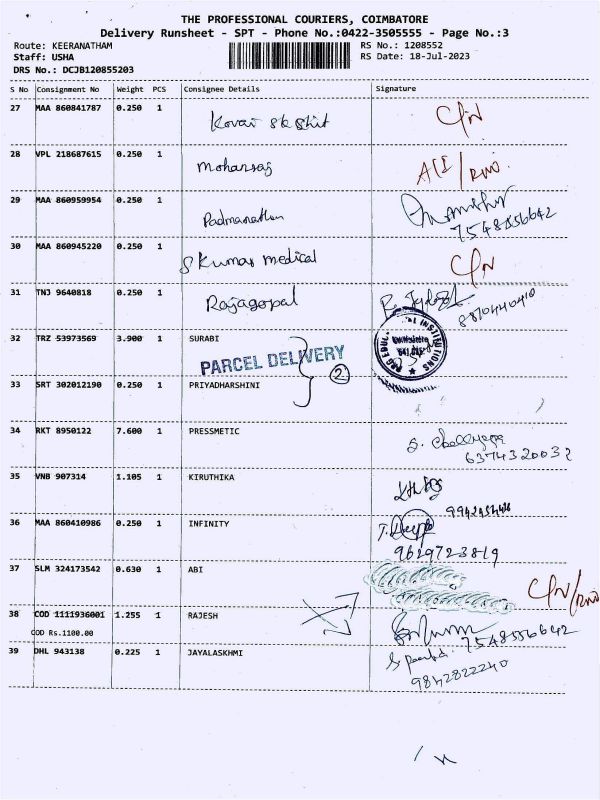 THE PROFESSIONAL COURIERS, COIMBATORE
Delivery Runsheet - SPT - Phone No.:0422-3505555 - Page No.:3
Route: KEERANATHAM RS No.: 1208552
Staff: USHA RS Date: 18-Jul-2023
DRS No.: DCJB120855203
S No Consignment No Weight PCS Consignee Details Signature
27 MAA 860841787 0.250 1 Kovai C/N
28 VPL 218687615 0.250 1 mohanraj
29 MAA 860959954 0.250 1 Padmanathan
7548556642
30 MAA 860945220 0.250 1 S Kumar medical C/N
31 TNJ 9640818 0.250 1 Rajagopal
8870440410
32 TRZ 53973569 3.900 1 SURABI
PARCEL DELIVERY 2
33 SRT 302012190 0.250 1 PRIYADHARSHINI
34 RKT 8950122 7.600 1 PRESSMETIC
6374320032
35 VNB 907314 1.105 1 KIRUTHIKA
36 MAA 860410986 0.250 1 INFINITY
9629723819
37 SLM 324173542 0.630 1 ABI C/N/RNO
38 COD 1111936001 1.255 1 RAJESH
COD Rs.1100.00 7548556642
39 DHL 943138 0.225 1 JAYALASKHMI
9842822240